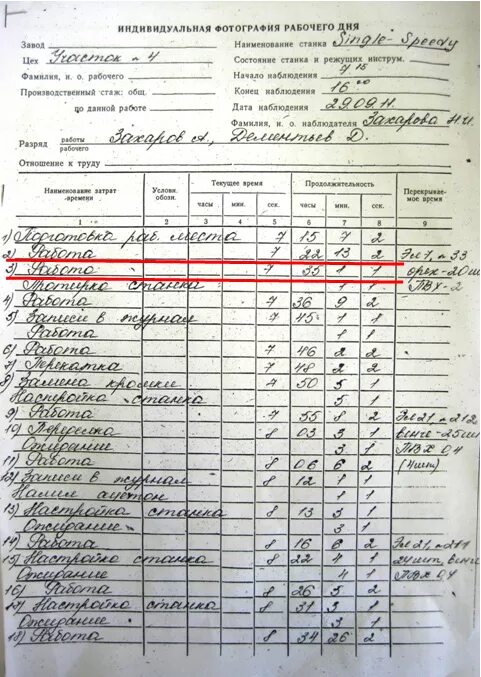 ИНДИВИДУАЛЬНАЯ ФОТОГРАФИЯ РАБОЧЕГО ДНЯ
Завод
Наименование станка Single-Speedy
Цех Участок 4
Состояние станка и режущих инструм.
Фамилия, и. о. рабочего
Начало наблюдения 7 15
Производственный стаж: общ.
Конец наблюдения 16 00
по данной работе
Дата наблюдения 29.09.11.
Фамилия, и. о. наблюдателя Захарова Н.И.
Разряд работы рабочего Захаров А., Дементьев Д.
Отношение к труду
Наименование затрат времени Условн. обозн. Текущее время Продолжительность Перекрываемое время
часы мин. сек. часы мин. сек.
1 2 3 4 5 6 7 8 9
1) Подготовка раб. места 7 15 7 2
2) Работа 7 22 13 2 Эл 1, п 33
3) Работа 7 35 1 1 орех-20ш
Протирка станка 1 1 ПВХ-2
4) Работа 7 36 9 2
5) Записи в журнал 7 45 1 1
Работа 1 1
6) Работа 7 46 2 2
7) Перекатка 7 48 2 2
8) Замена кромки 7 50 5 1
Настройка станка 5 1
9) Работа 7 55 8 2 Эл 21, п 212
10) Переделка 8 03 3 1 венге-25ш
Ожидание 3 1 ПВХ 0,4
11) Работа 8 06 6 2 (4шт)
12) Записи в журнал 8 12 8 1
Налил ацетон 1 1
13) Настройка станка 8 13 3 1
Ожидание 3 1
14) Работа 8 16 6 2 Эл 21, п 211
15) Настройка станка 8 22 4 1 24шт, венге
Ожидание 4 1 ПВХ 0,4
16) Работа 8 26 5 2
17) Настройка станка 8 31 3 1
Ожидание 3 1
18) Работа 8 34 26 2